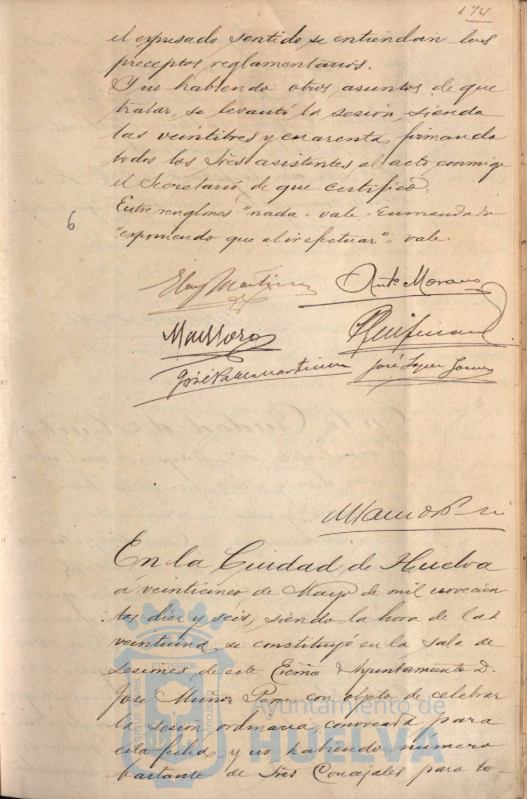 174
el expresado sentido se entiendan los
preceptos reglamentarios.
Y no habiendo otros asuntos de que
tratar, se levantó la sesión, siendo
las veintitres y cuarenta, firmando
todos los Sres asistentes al acto, conmigo
el Secretario, de que certifico.
Entre renglones "nada - vale - Enmendado
"exponiendo que al irefectuar" - vale.
6
Eloy Martinez
Antº Moreno
José López Gómez
En la Ciudad de Huelva
a veinticinco de Mayo de mil novecien
tos diez y seis, siendo la hora de las
veintiuna, se constituyó en la Sala de
sesiones de este Excmo Ayuntamiento D.
José Muñoz Perez con objeto de celebrar
la sesion ordinaria convocada para
esta fecha y no habiendo numero
bastante de Sres Concejales para to-
Ayuntamiento de
HUELVA